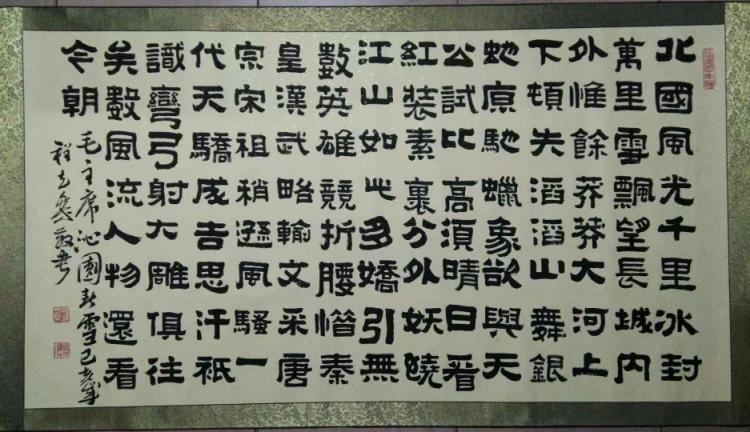 北國風光千里冰封
萬里雪飄望長城内
外惟餘莽莽大河上
下頓失滔滔山舞銀
蛇原馳蠟象欲與天
公試比高須晴日看
紅裝素裹分外妖嬈
江山如此多嬌引無
數英雄競折腰惜秦
皇漢武略輸文采唐
宗宋祖稍遜風騷一
代天驕成吉思汗祇
識彎弓射大雕俱往
矣數風流人物還看
今朝
毛主席沁園春雪己亥歲